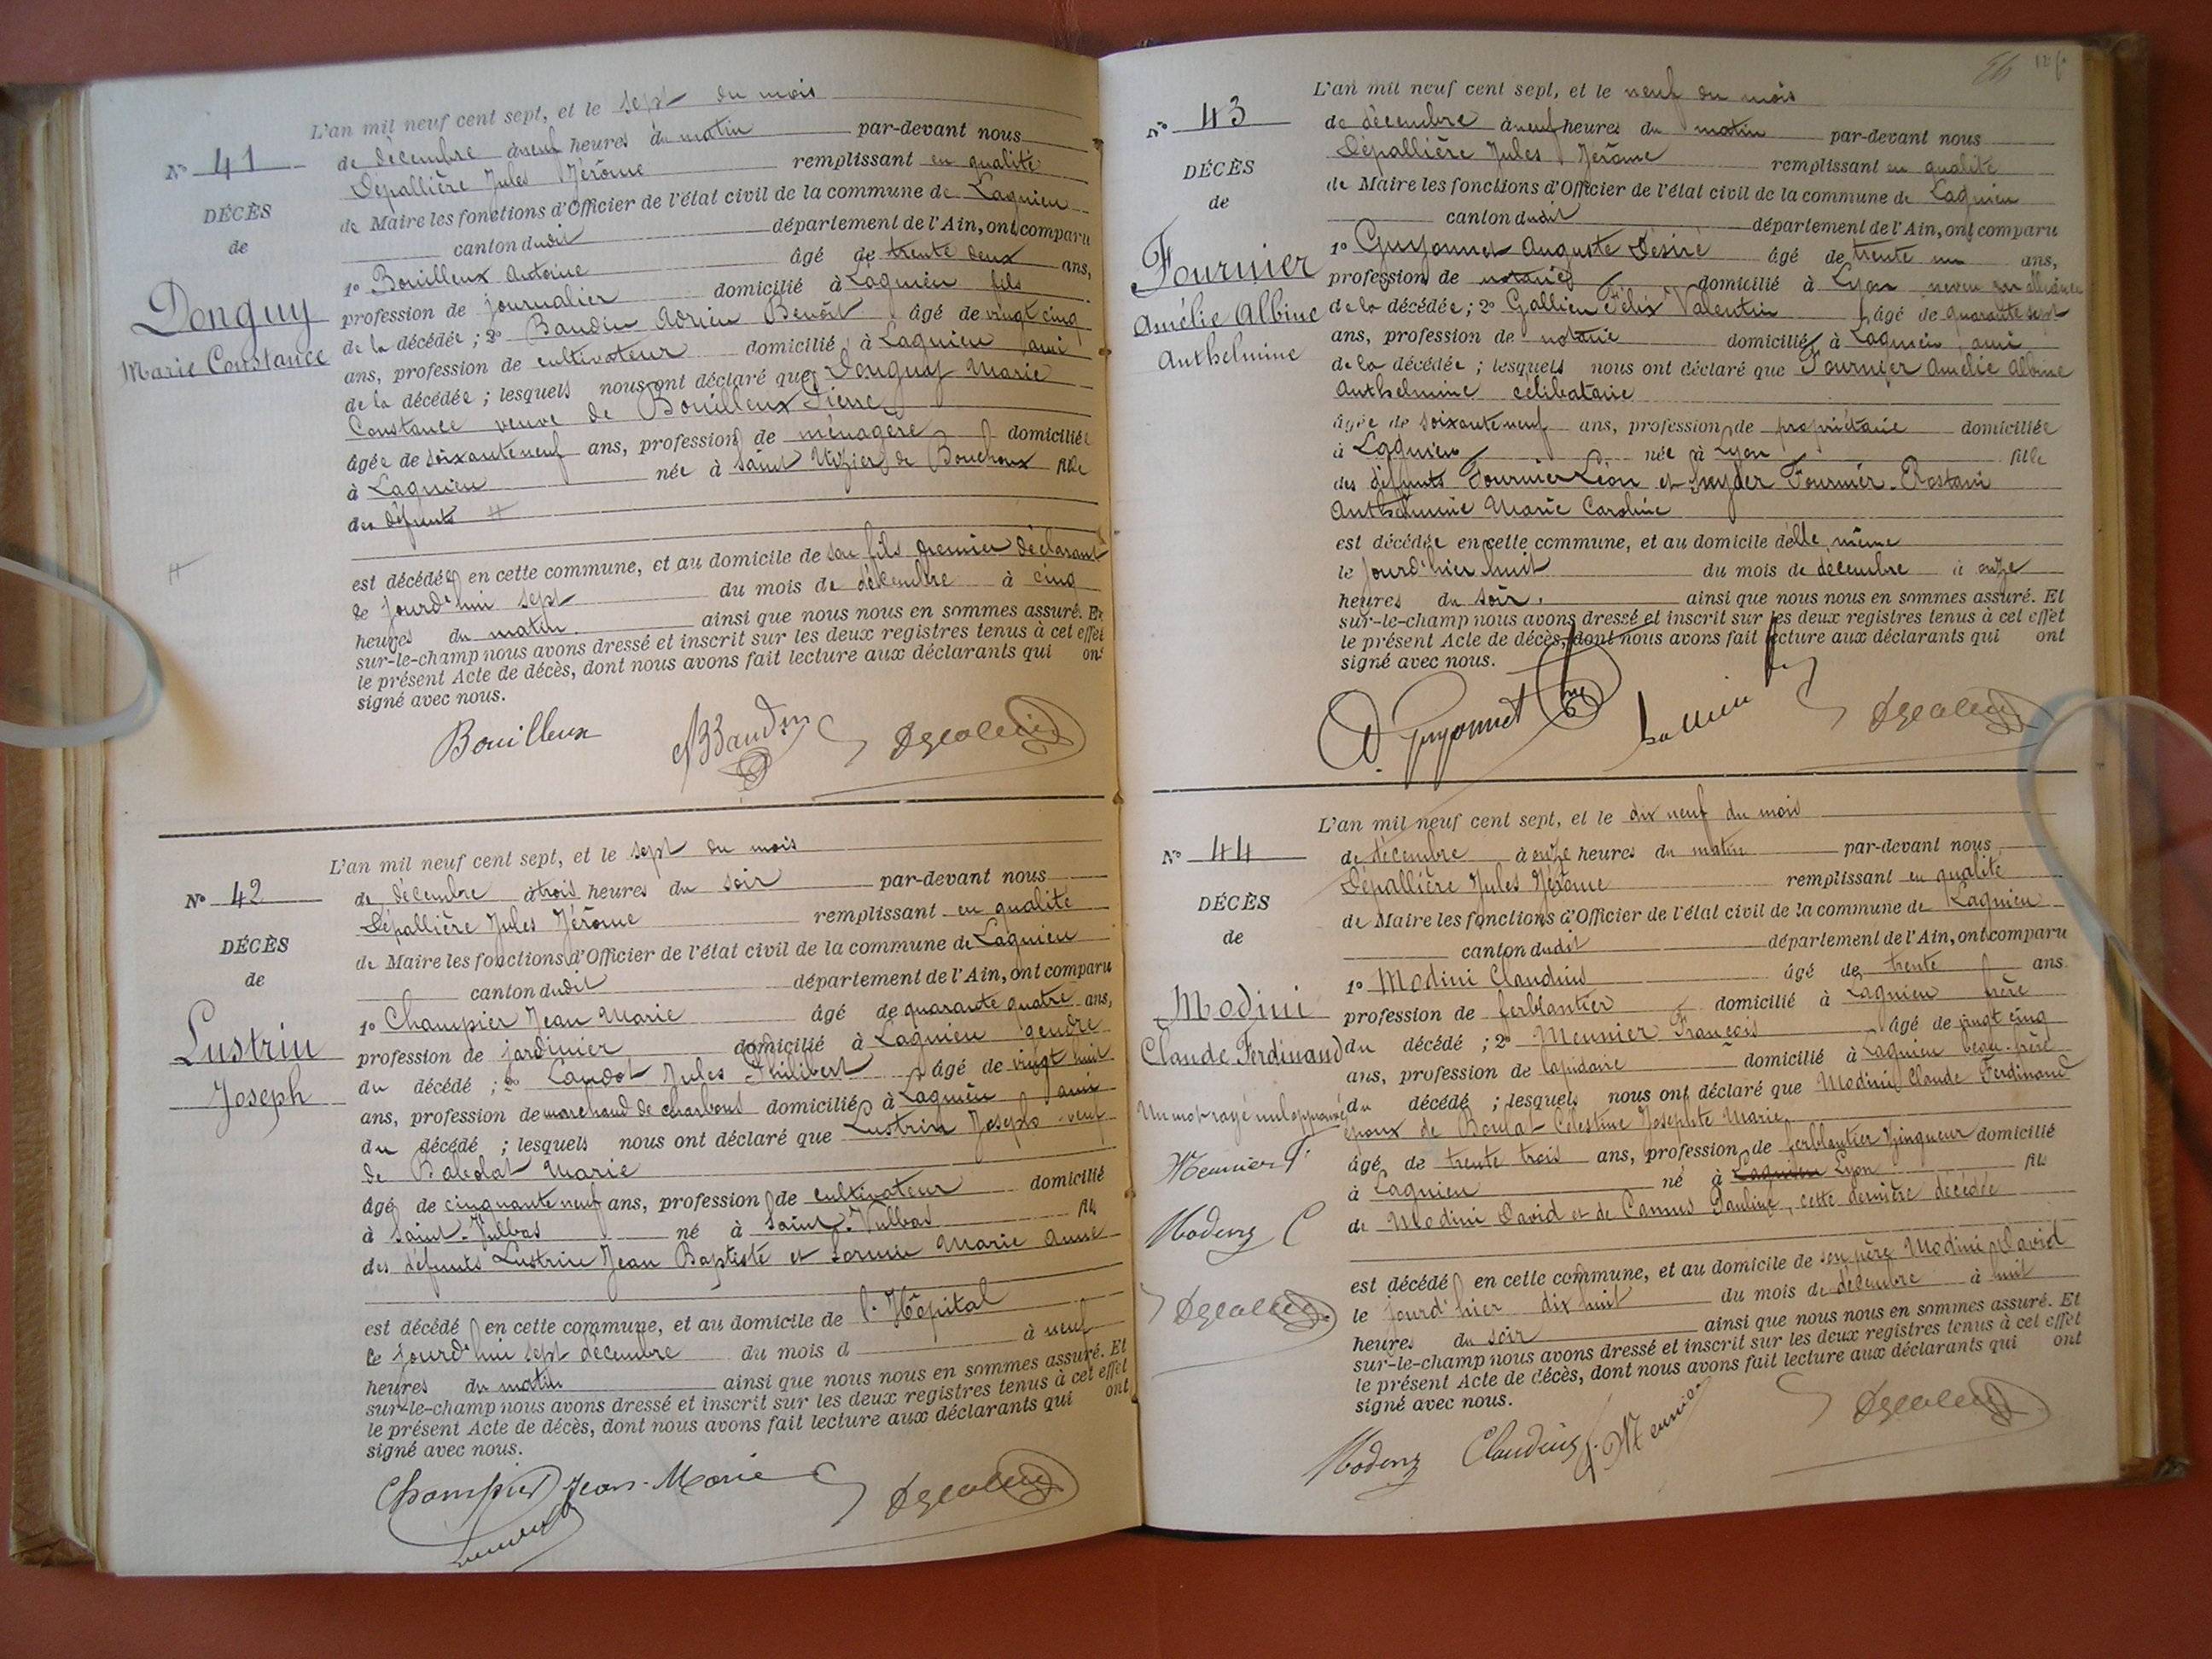 L'an mil neuf cent sept, et le sept du mois
N° 41
de décembre à neuf heures du matin par-devant nous
Dépallière Jules Jérôme remplissant en qualité
DÉCÈS
de Maire les fonctions d'Officier de l'état civil de la commune de Lagnieu
de
canton dudit département de l'Ain, ont comparu
1° Bouilleux Antoine âgé de trente deux ans,
Donguy
profession de journalier domicilié à Lagnieu fils
Marie Constance
de la décédée ; 2° Baudin Adrien Benoît âgé de vingt cinq
ans, profession de cultivateur domicilié à Lagnieu ami
de la décédée ; lesquels nous ont déclaré que Donguy Marie
Constance veuve de Bouilleux Pierre
âgée de soixante neuf ans, profession de ménagère domiciliée
à Lagnieu née à Saint de Bouchoux fille
des défunts #
#
est décédée en cette commune, et au domicile de son fils premier déclarant
le jourd'hui sept du mois de décembre à cinq
heures du matin. ainsi que nous nous en sommes assuré. Et
sur-le-champ nous avons dressé et inscrit sur les deux registres tenus à cet effet
le présent Acte de décès, dont nous avons fait lecture aux déclarants qui ont
signé avec nous.
Bouilleux Baudin
L'an mil neuf cent sept, et le sept du mois
N° 42
de décembre à trois heures du soir par-devant nous
Dépallière Jules Jérôme remplissant en qualité
DÉCÈS
de Maire les fonctions d'Officier de l'état civil de la commune de Lagnieu
de
canton dudit département de l'Ain, ont comparu
1° Champier Jean Marie âgé de quarante quatre ans,
Lustrin
profession de jardinier domicilié à Lagnieu gendre
Joseph
du décédé ; 2° Laudot Jules Philibert âgé de vingt huit
ans, profession de marchand de charbons domicilié à Lagnieu ami
du décédé ; lesquels nous ont déclaré que Lustrin Joseph veuf
de Babolat Marie
âgé de cinquante neuf ans, profession de cultivateur domicilié
à Saint-Vulbas né à Saint-Vulbas fils
des défunts Lustrin Jean Baptiste et Marie Anne
est décédé en cette commune, et au domicile de l'Hôpital
le jourd'hui sept décembre du mois d à neuf
heures du matin ainsi que nous nous en sommes assuré. Et
sur-le-champ nous avons dressé et inscrit sur les deux registres tenus à cet effet
le présent Acte de décès, dont nous avons fait lecture aux déclarants qui ont
signé avec nous.
Champier Jean-Marie
L'an mil neuf cent sept, et le neuf du mois
N° 43
de décembre à neuf heures du matin par-devant nous
Dépallière Jules Jérôme remplissant en qualité
DÉCÈS
de Maire les fonctions d'Officier de l'état civil de la commune de Lagnieu
de
canton dudit département de l'Ain, ont comparu
1° Guyonnet Auguste Désiré âgé de trente un ans,
Fournier
profession de domicilié à Lyon neveu par alliance
Amélie Albine
de la décédée ; 2° Gallien Félix Valentin âgé de quarante sept
Anthelmine
ans, profession de notaire domicilié à Lagnieu, ami
de la décédée ; lesquels nous ont déclaré que Fournier Amélie Albine
Anthelmine célibataire
âgée de soixante neuf ans, profession de propriétaire domiciliée
à Lagnieu née à Lyon fille
des défunts Fournier Léon et Snyder Fournier-Rostain
Anthelmine Marie Caroline
est décédée en cette commune, et au domicile d'elle même
le jourd'hier huit du mois de décembre à onze
heures du soir. ainsi que nous nous en sommes assuré. Et
sur-le-champ nous avons dressé et inscrit sur les deux registres tenus à cet effet
le présent Acte de décès, dont nous avons fait lecture aux déclarants qui ont
signé avec nous.
Guyonnet
L'an mil neuf cent sept, et le dix neuf du mois
N° 44
de décembre à onze heures du matin par-devant nous
Dépallière Jules Jérôme remplissant en qualité
DÉCÈS
de Maire les fonctions d'Officier de l'état civil de la commune de Lagnieu
de
canton dudit département de l'Ain, ont comparu
1° Modini Claudius âgé de trente ans
Modini
profession de ferblantier domicilié à Lagnieu frère
Claude Ferdinand
du décédé ; 2° Meunier François âgé de vingt cinq
ans, profession de lapidaire domicilié à Lagnieu beau-frère
Un mot rayé nul approuvé
du décédé ; lesquels nous ont déclaré que Modini Claude Ferdinand
époux de Boulat Célestine Josephte Marie
Meunier F
âgé de trente trois ans, profession de ferblantier zingueur domicilié
à Lagnieu né à Lagnieu Lyon fils
Modeny C
de Modini David et de Camus Pauline, cette dernière décédée
est décédé en cette commune, et au domicile de son père Modini David
le jourd'hier dix huit du mois de décembre à huit
heures du soir ainsi que nous nous en sommes assuré. Et
sur-le-champ nous avons dressé et inscrit sur les deux registres tenus à cet effet
le présent Acte de décès, dont nous avons fait lecture aux déclarants qui ont
signé avec nous.
Modeny Claudius F. Meunier